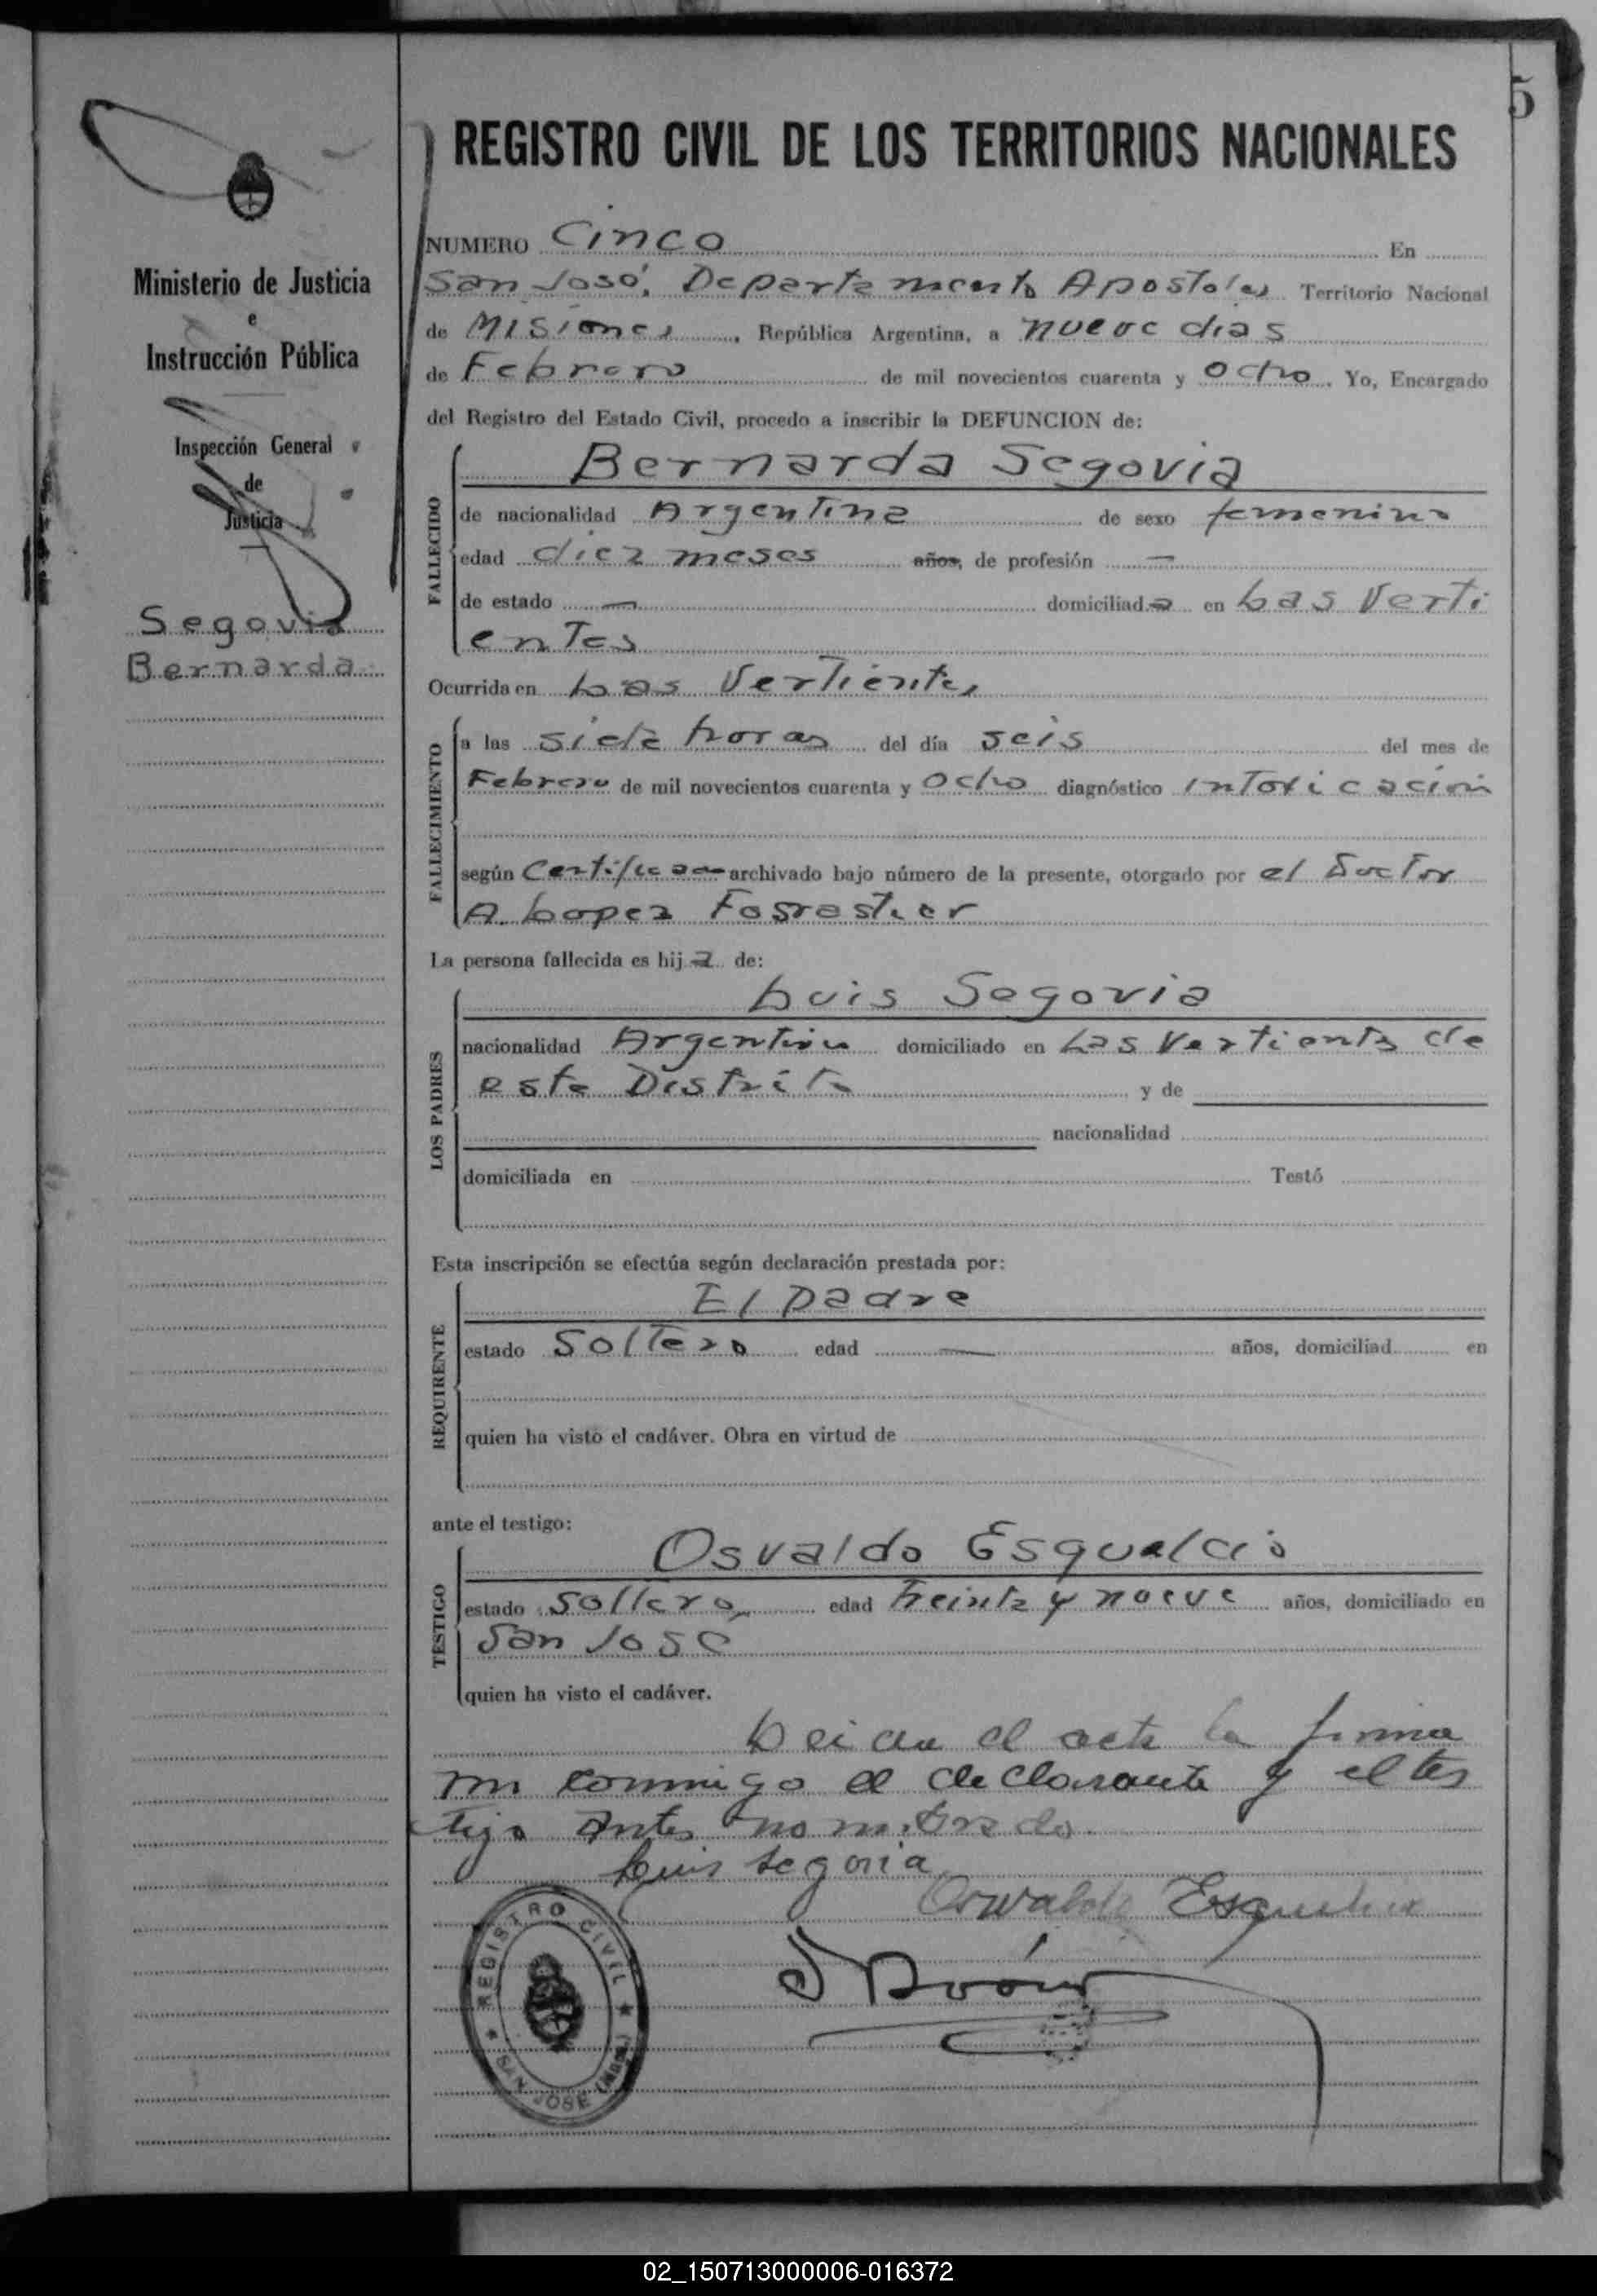 5
REGISTRO CIVIL DE LOS TERRITORIOS NACIONALES
Ministerio de Justicia
e
Instrucción Pública
Inspección General
de
Justicia
Segovia
Bernarda
NUMERO Cinco En
San José, Departamento Apostoles Territorio Nacional
de Misiones, República Argentina, a nueve dias
de Febrero de mil novecientos cuarenta y Ocho. Yo, Encargado
del Registro del Estado Civil, procedo a inscribir la DEFUNCION de:
FALLECIDO
Bernarda Segovia
de nacionalidad Argentina de sexo femenino
edad diez meses años, de profesión —
de estado — domiciliada en Las Verti
entes
Ocurrida en Las Vertientes
FALLECIMIENTO
a las siete horas del día seis del mes de
Febrero de mil novecientos cuarenta y Ocho diagnóstico Intoxicación
según Certificado archivado bajo número de la presente, otorgado por el Doctor
A. Lopez
La persona fallecida es hija de:
LOS PADRES
Luis Segovia
nacionalidad Argentino domiciliado en Las Vertientes de
este Distrito y de
nacionalidad
domiciliada en Testó
Esta inscripción se efectúa según declaración prestada por:
REQUIRENTE
El padre
estado Soltero edad — años, domiciliad en
quien ha visto el cadáver. Obra en virtud de
ante el testigo:
TESTIGO
Osvaldo
estado Soltero, edad Treinta y nueve años, domiciliado en
San José
quien ha visto el cadáver.
Leida el acta la firma
mi conmigo el declarante y el tes
tigo antes nombrado
Luis Segovia
Oswaldo
REGISTRO CIVIL
SAN JOSE (Mnes.)
02_150713000006-016372